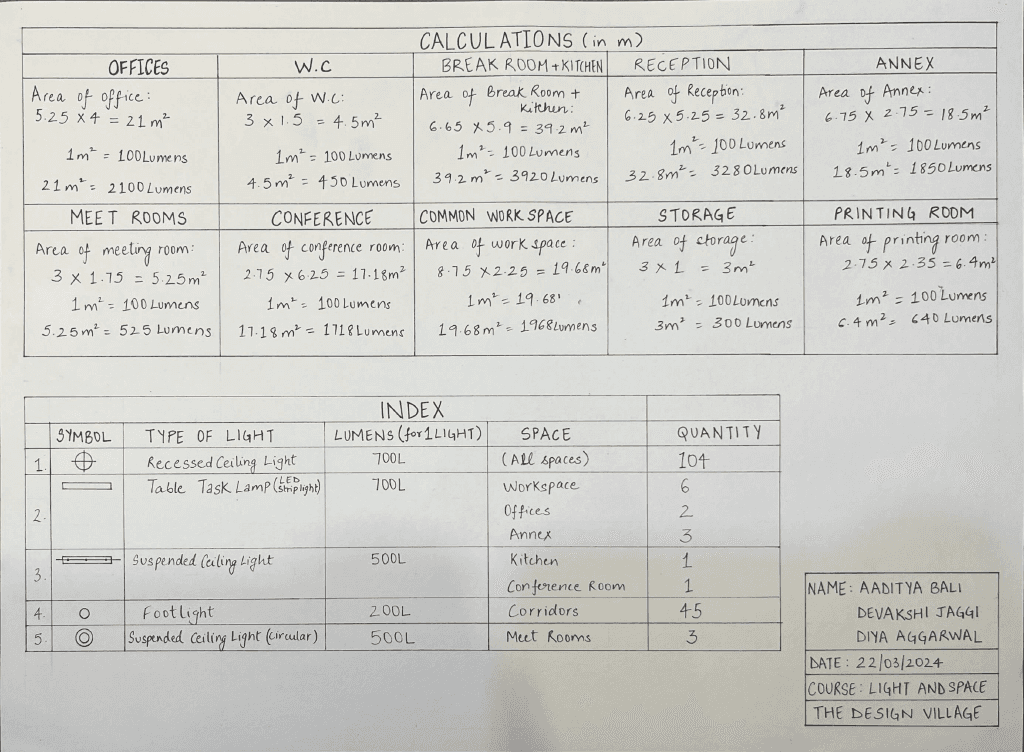 CALCULATIONS (in m)
OFFICES
Area of office:
5.25 x 4 = 21 m²
1m² = 100Lumens
21m² = 2100Lumens
W.C
Area of W.C:
3 x 1.5 = 4.5m²
1m² = 100Lumens
4.5m² = 450 Lumens
BREAK ROOM + KITCHEN
Area of Break Room +
Kitchen:
6.65 x 5.9 = 39.2 m²
1m² = 100 Lumens
39.2 m² = 3920Lumens
RECEPTION
Area of Reception:
6.25 x 5.25 = 32.8m²
1m² = 100Lumens
32.8m² = 3280Lumens
ANNEX
Area of Annex:
6.75 x 2.75 = 18.5m²
1m² = 100Lumens
18.5m² = 1850Lumens
MEET ROOMS
Area of meeting room:
3 x 1.75 = 5.25m²
1m² = 100Lumens
5.25m² = 525 Lumens
CONFERENCE
Area of conference room:
2.75 x 6.25 = 17.18m²
1m² = 100Lumens
17.18m² = 1718Lumens
COMMON WORK SPACE
Area of work space:
8.75 x 2.25 = 19.68m²
1m² = 19.68'
19.68m² = 1968Lumens
STORAGE
Area of storage:
3 x 1 = 3m²
1m² = 100Lumens
3m² = 300 Lumens
PRINTING ROOM
Area of printing room:
2.75 x 2.35 = 6.4m²
1m² = 100Lumens
6.4m² = 640 Lumens
INDEX
SYMBOL TYPE OF LIGHT LUMENS (for 1 LIGHT) SPACE QUANTITY
1. Recessed Ceiling Light 700L (All spaces) 104
2. Table Task Lamp (LED strip light) 700L Workspace 6
Offices 2
Annex 3
3. Suspended Ceiling Light 500L Kitchen 1
Conference Room 1
4. Footlight 200L Corridors 45
5. Suspended Ceiling Light (circular) 500L Meet Rooms 3
NAME: AADITYA BALI
DEVAKSHI JAGGI
DIYA AGGARWAL
DATE: 22/03/2024
COURSE: LIGHT AND SPACE
THE DESIGN VILLAGE